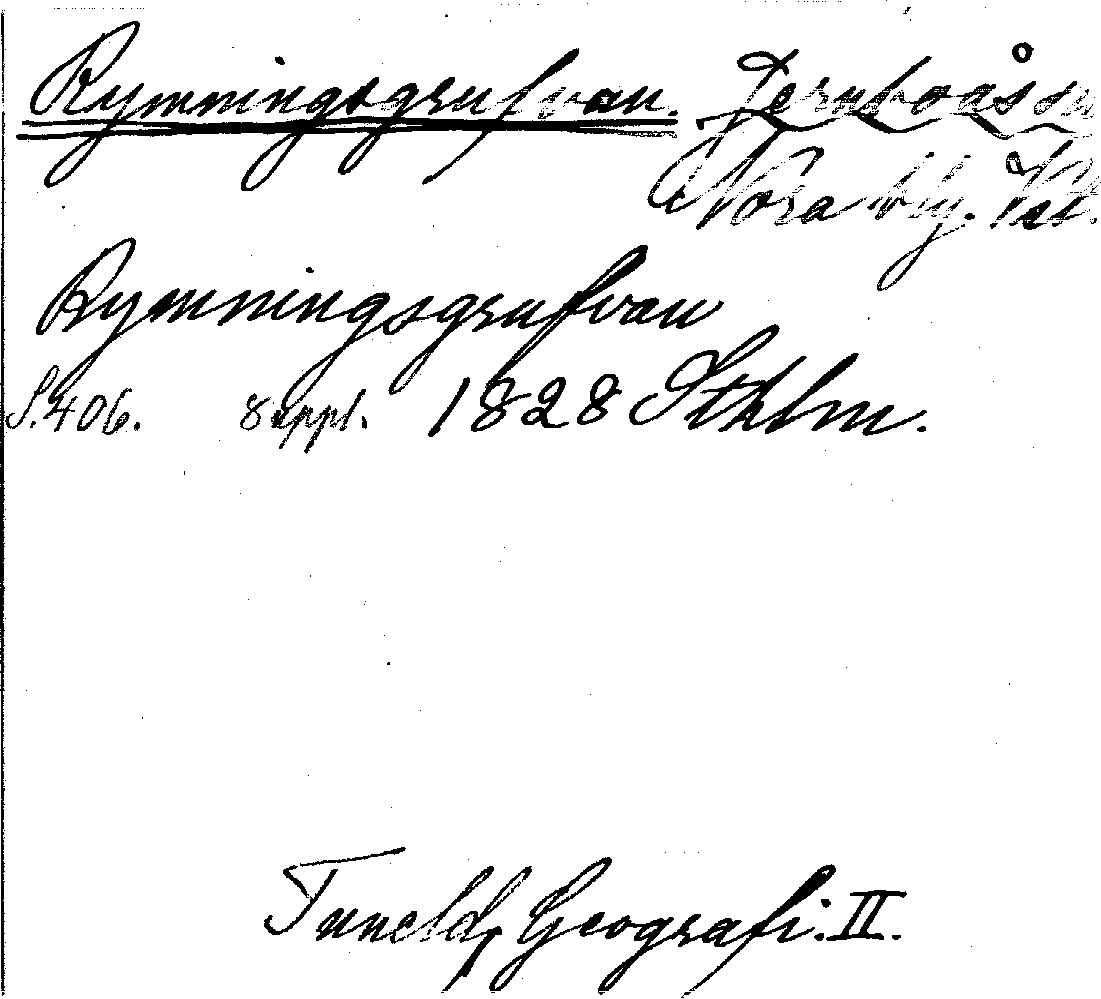 Rymningsgrufvan. Jernboås sn
Nora bg. Vstl.
Rymningsgrufvan
S. 406. 8 uppl. 1828 Sthlm.
Tuneld, Geografi. II.